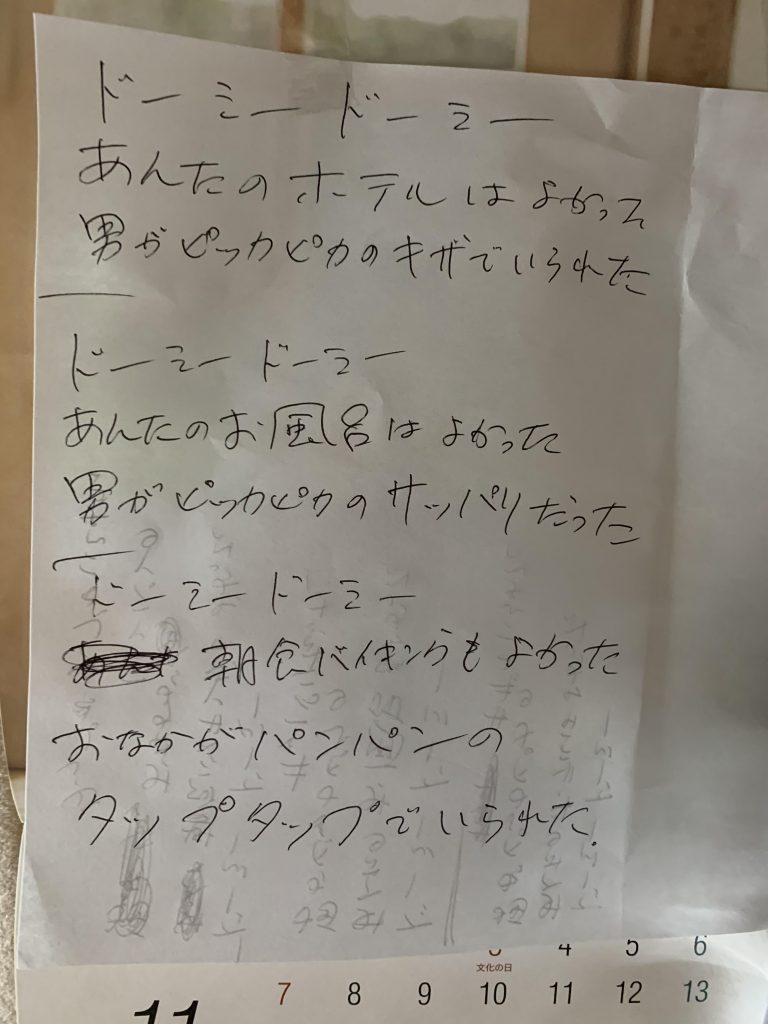 ドーミー ドーミー
あんたのホテルはよかって
男がピッカピカのキザでいられた
ドーミー ドーミー
あんたのお風呂はよかった
男がピッカピカのサッパリだった
ドーミー ドーミー
朝食バイキングもよかった
おなかがパンパンの
タップタップでいられた.
4 5 6
文化の日
11 7 8 9 10 11 12 13